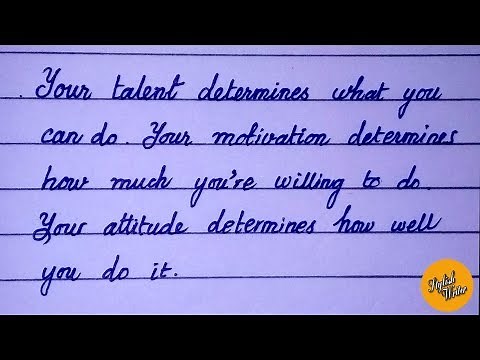 Your talent determines what you
can do. Your motivation determines
how much you're willing to do.
Your attitude determines how well
you do it.
English
Writer